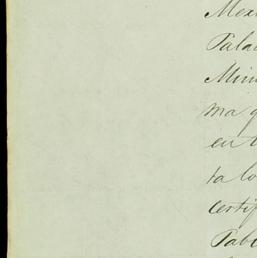 Mexi
Palac
Mini
ma q
en l
ta lo
certif
Pabl